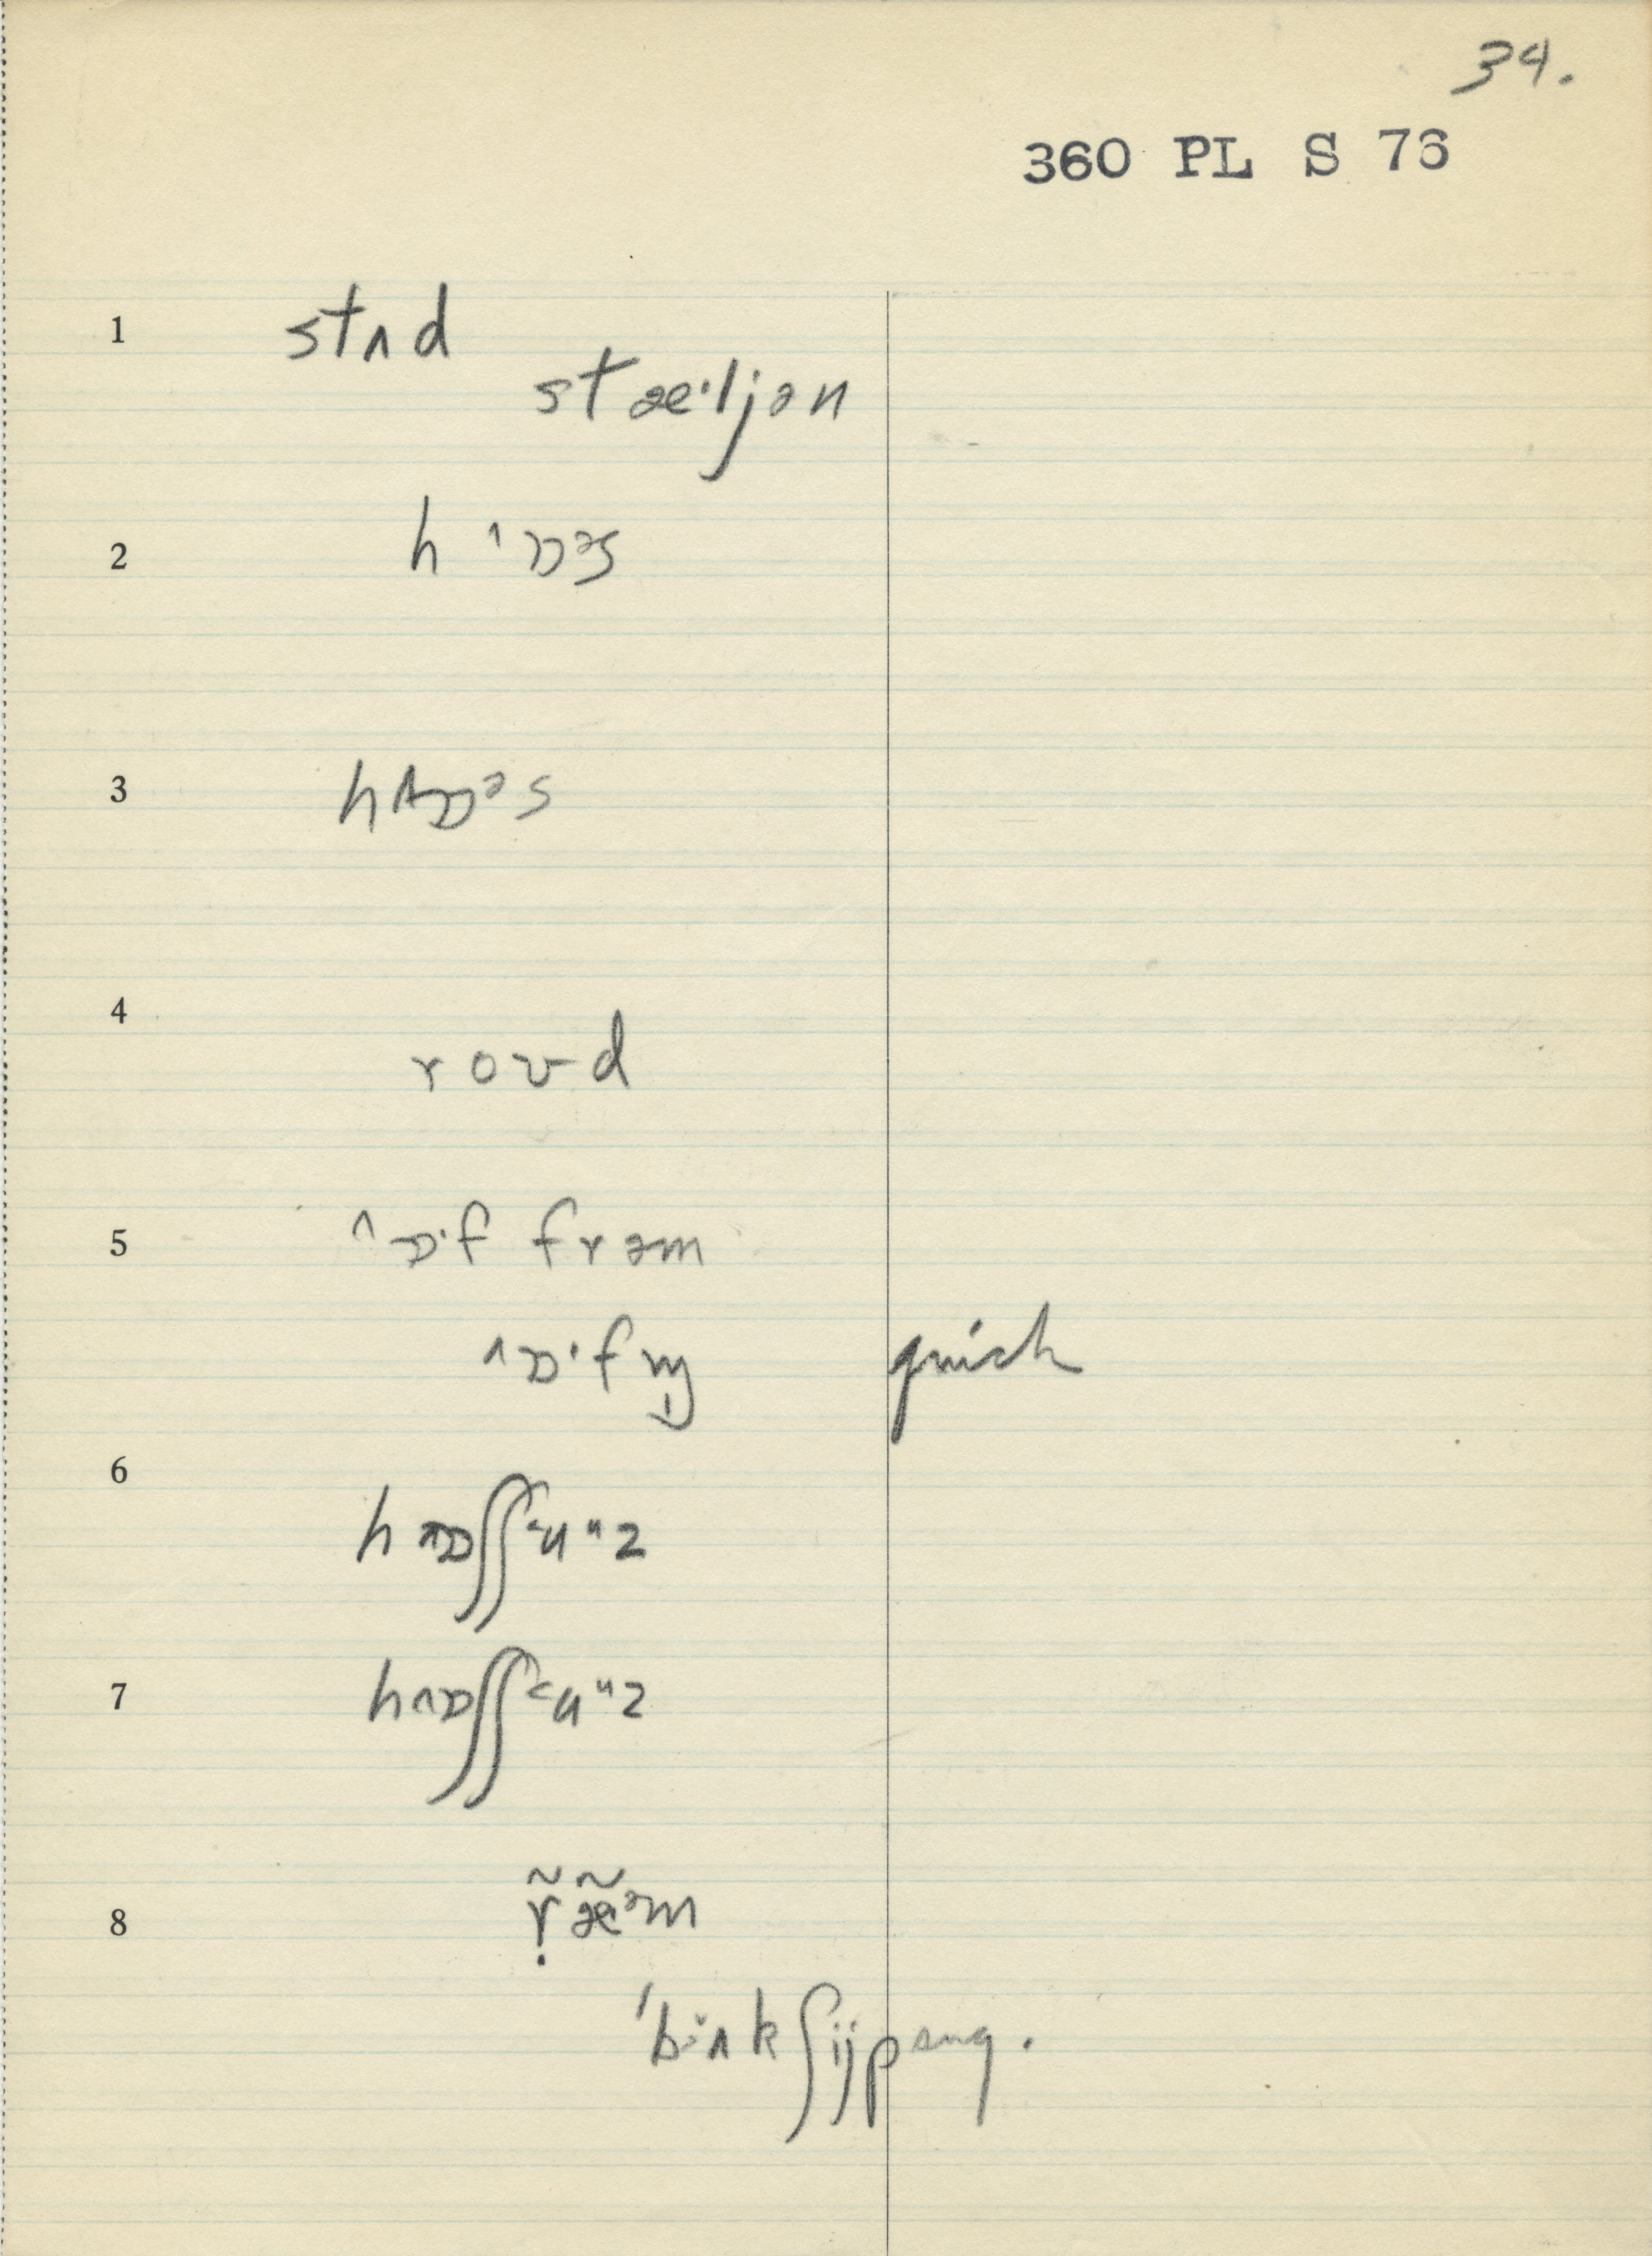 34.
360 PL S 76
1 stʌd
stæ·ljən
2 h ˄ɒɒəs
3 hʌɒəs
4 roʊd
5 ˄ɒ·f frəm
˄ɒ·fn̩ quick
6 hʌɒʃʃ˂u"z
7 hʌɒʃʃ˂u"z
8 ræ̃əm